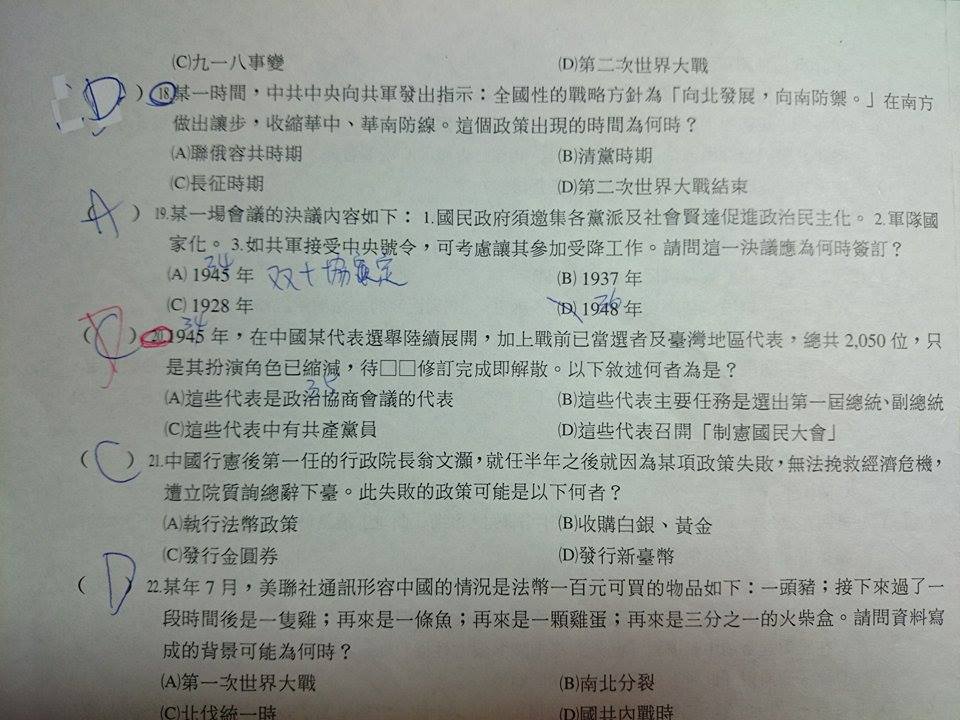 (C)九一八事變 (D)第二次世界大戰
D ) 18.某一時間，中共中央向共軍發出指示：全國性的戰略方針為「向北發展，向南防禦。」在南方
做出讓步，收縮華中、華南防線。這個政策出現的時間為何時？
(A)聯俄容共時期 (B)清黨時期
(C)長征時期 (D)第二次世界大戰結束
A ) 19.某一場會議的決議內容如下：1.國民政府須邀集各黨派及社會賢達促進政治民主化。2.軍隊國
家化。3.如共軍接受中央號令，可考慮讓其參加受降工作。請問這一決議應為何時簽訂？
34
(A) 1945 年 双十協定 (B) 1937 年
36
(C) 1928 年 (D) 1948 年
34
( ) 20.1945 年，在中國某代表選舉陸續展開，加上戰前已當選者及臺灣地區代表，總共 2,050 位，只
是其扮演角色已縮減，待□□修訂完成即解散。以下敘述何者為是？
35
(A)這些代表是政治協商會議的代表 (B)這些代表主要任務是選出第一屆總統、副總統
(C)這些代表中有共產黨員 (D)這些代表召開「制憲國民大會」
( C ) 21.中國行憲後第一任的行政院長翁文灝，就任半年之後就因為某項政策失敗，無法挽救經濟危機，
遭立院質詢總辭下臺。此失敗的政策可能是以下何者？
(A)執行法幣政策 (B)收購白銀、黃金
(C)發行金圓券 (D)發行新臺幣
( D ) 22.某年 7 月，美聯社通訊形容中國的情況是法幣一百元可買的物品如下：一頭豬；接下來過了一
段時間後是一隻雞；再來是一條魚；再來是一顆雞蛋；再來是三分之一的火柴盒。請問資料寫
成的背景可能為何時？
(A)第一次世界大戰 (B)南北分裂
(C)北伐統一時 (D)國共內戰時